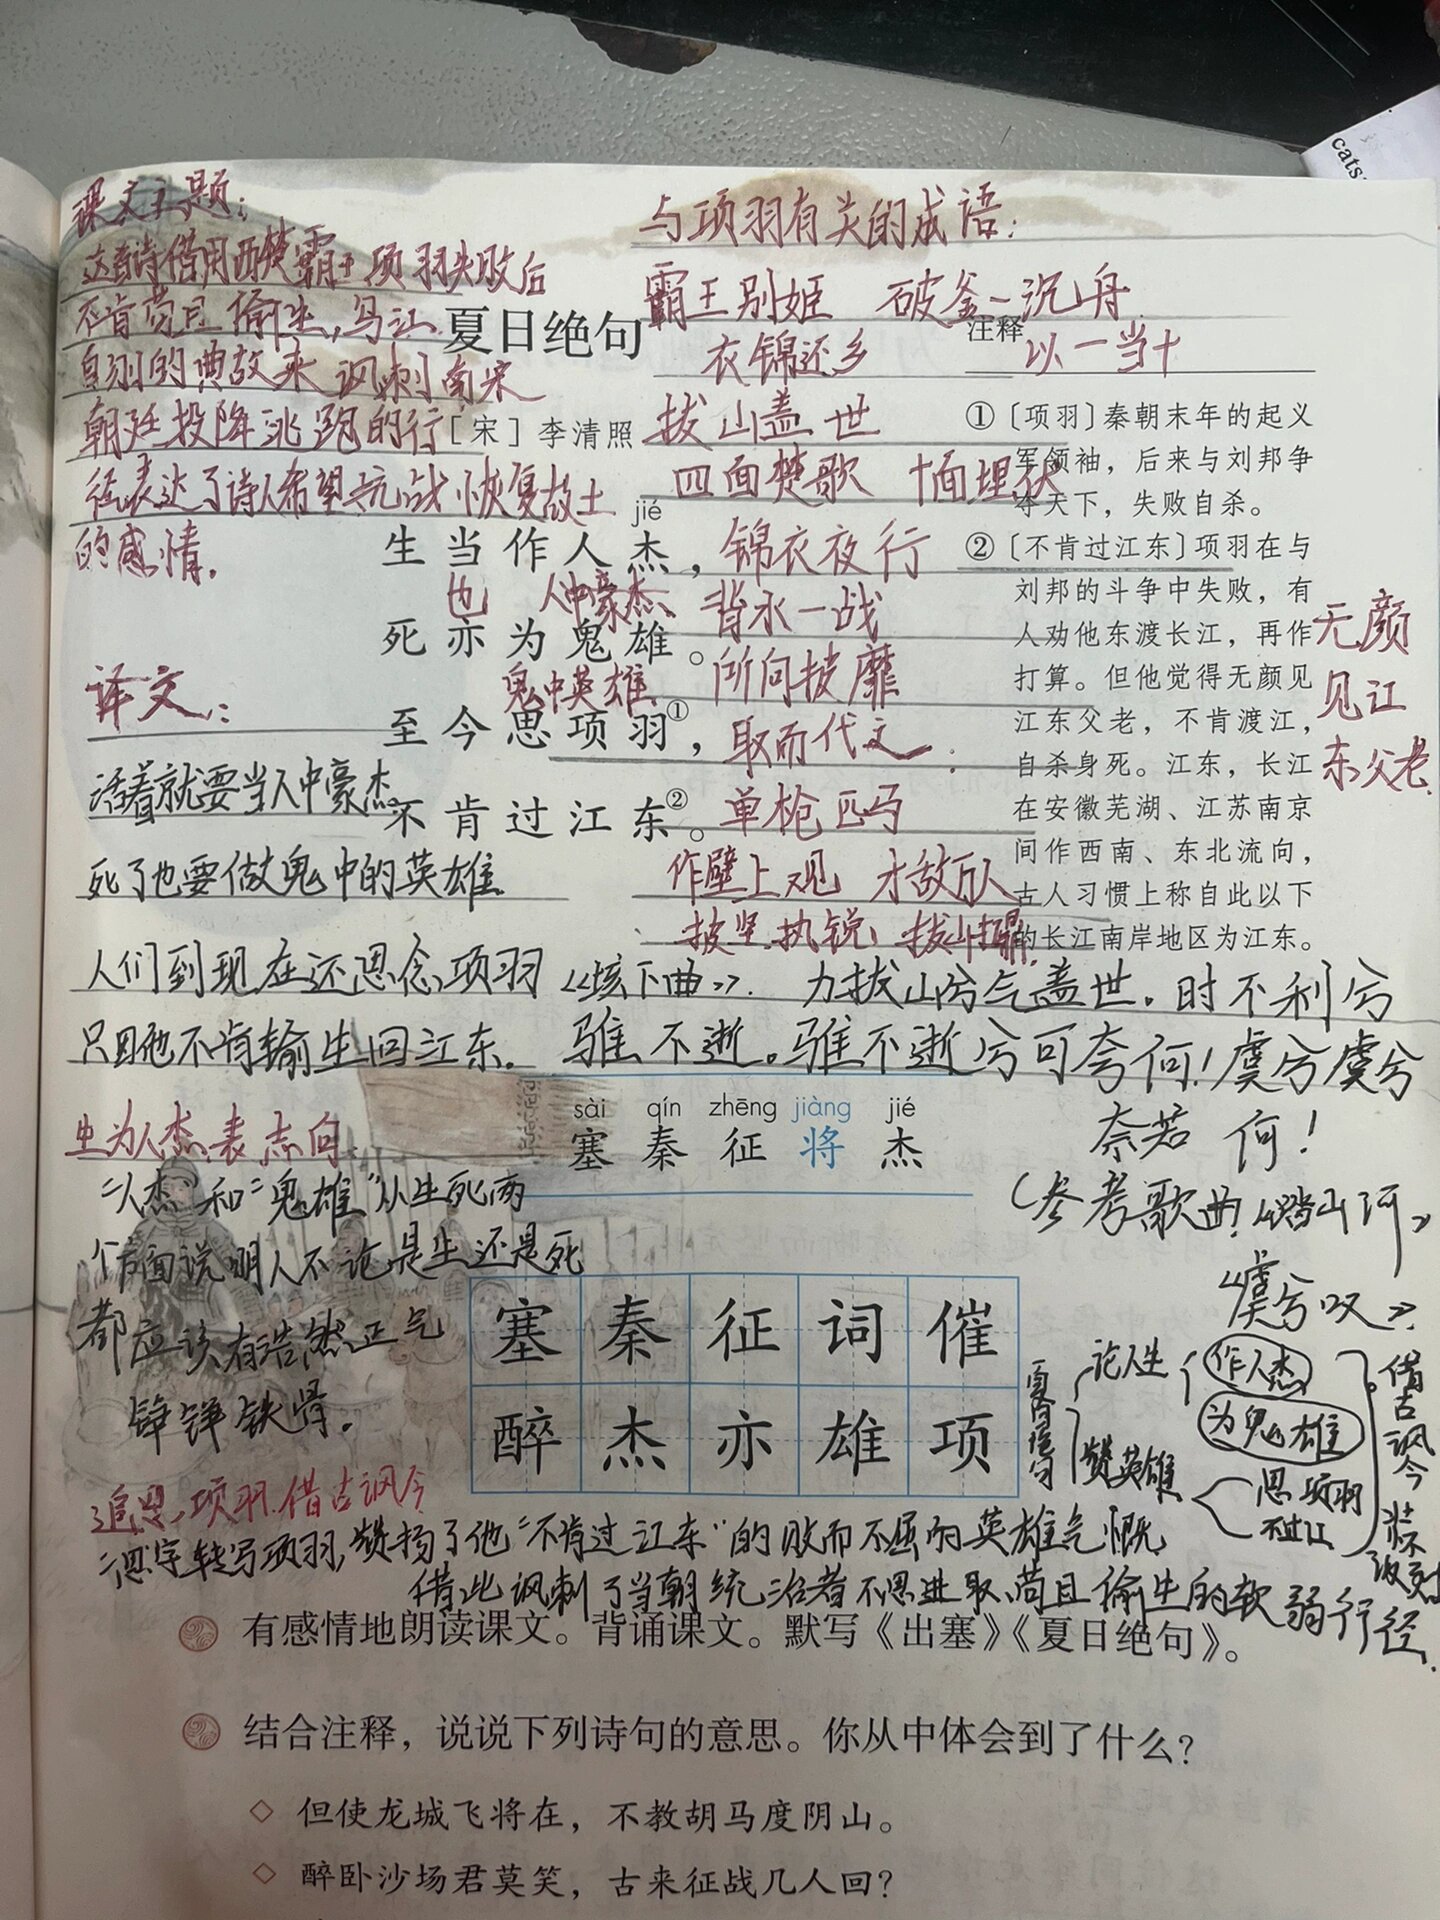 课文主题：
这首诗借用西楚霸王项羽失败后
不肯苟且偷生，乌江
自刎的典故来讽刺南宋
朝廷投降逃跑的行
径表达了诗人希望抗战恢复故土
的感情。
与项羽有关的成语：
霸王别姬 破釜沉舟
衣锦还乡 以一当十
拔山盖世
四面楚歌 十面埋伏
锦衣夜行
背水一战
所向披靡
取而代之
单枪匹马
作壁上观 才敌万人
披坚执锐、拔山扛鼎
夏日绝句
[宋] 李清照
jié
生当作人杰，
也 人中豪杰
死亦为鬼雄。
鬼中英雄
至今思项羽①，
不肯过江东②。
注释
①〔项羽〕秦朝末年的起义
军领袖，后来与刘邦争
夺天下，失败自杀。
②〔不肯过江东〕项羽在与
刘邦的斗争中失败，有
人劝他东渡长江，再作
打算。但他觉得无颜见
江东父老，不肯渡江，
自杀身死。江东，长江
在安徽芜湖、江苏南京
间作西南、东北流向，
古人习惯上称自此以下
的长江南岸地区为江东。
无颜
见江
东父老
译文：
活着就要当人中豪杰
死了也要做鬼中的英雄
人们到现在还思念项羽
只因他不肯输生回江东。
《垓下曲》. 力拔山兮气盖世。时不利兮
骓不逝。骓不逝兮可夸何！虞兮虞兮
奈若何！
(参考歌曲！《踏山河》
《虞兮叹》
生为人杰表志向
“人杰”和“鬼雄”从生死两
个方面说明人不论是生还是死
都应该有浩然正气
铮铮铁骨。
sài qín zhēng jiàng jié
塞 秦 征 将 杰
塞 秦 征 词 催
醉 杰 亦 雄 项
夏日绝句
论人生
作人杰
为鬼雄
赞英雄
思项羽
不过江
借古讽今
追思项羽.借古讽今
“思”字转写项羽，赞扬了他“不肯过江东”的败而不屈的英雄气慨
借此讽刺了当朝统治者不思进取、苟且偷生的软弱行径.
有感情地朗读课文。背诵课文。默写《出塞》《夏日绝句》。
结合注释，说说下列诗句的意思。你从中体会到了什么？
◇ 但使龙城飞将在，不教胡马度阴山。
◇ 醉卧沙场君莫笑，古来征战几人回？
cats